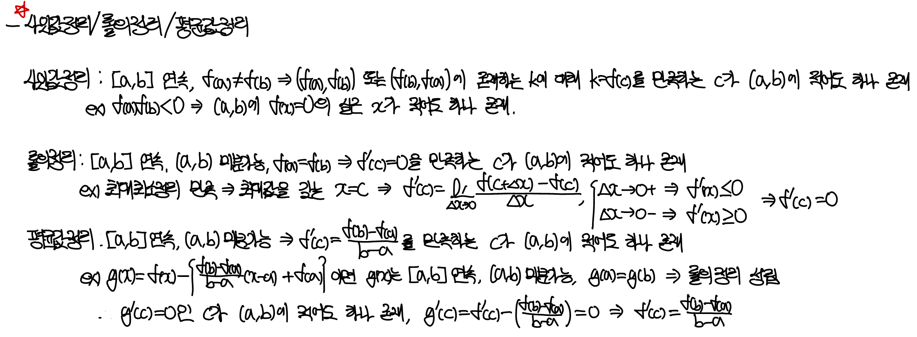 - 사잇값정리/롤의정리/평균값정리
사잇값정리 : [a,b] 연속, f(a)≠f(b) ⇒ (f(a),f(b)) 또는 (f(b),f(a))에 존재하는 k에 대해 k=f(c)을 만족하는 c가 (a,b)에 적어도 하나 존재
ex) f(a)f(b)<0 ⇒ (a,b)에 f(x)=0의 실근 x가 적어도 하나 존재.
롤의정리 : [a,b] 연속, (a,b) 미분가능, f(a)=f(b) ⇒ f'(c)=0을 만족하는 c가 (a,b)에 적어도 하나 존재
ex) 최대최소정리 만족 ⇒ 최대값을 갖는 x=c ⇒ f'(c)= lim Δx→0 (f(c+Δx)-f(c))/Δx, { Δx→0+ ⇒ f'(x)≤0
Δx→0- ⇒ f'(x)≥0 ⇒ f'(c)=0
평균값정리. [a,b] 연속, (a,b) 미분가능 ⇒ f'(c)= (f(b)-f(a))/(b-a) 를 만족하는 c가 (a,b)에 적어도 하나 존재
ex) g(x)=f(x)-{(f(b)-f(a))/(b-a) (x-a)+f(a)} 이면 g(x)는 [a,b] 연속, (a,b) 미분가능, g(a)=g(b) ⇒ 롤의정리 성립
. g'(c)=0인 c가 (a,b)에 적어도 하나 존재, g'(c)=f'(c)-((f(b)-f(a))/(b-a))=0 ⇒ f'(c)= (f(b)-f(a))/(b-a)